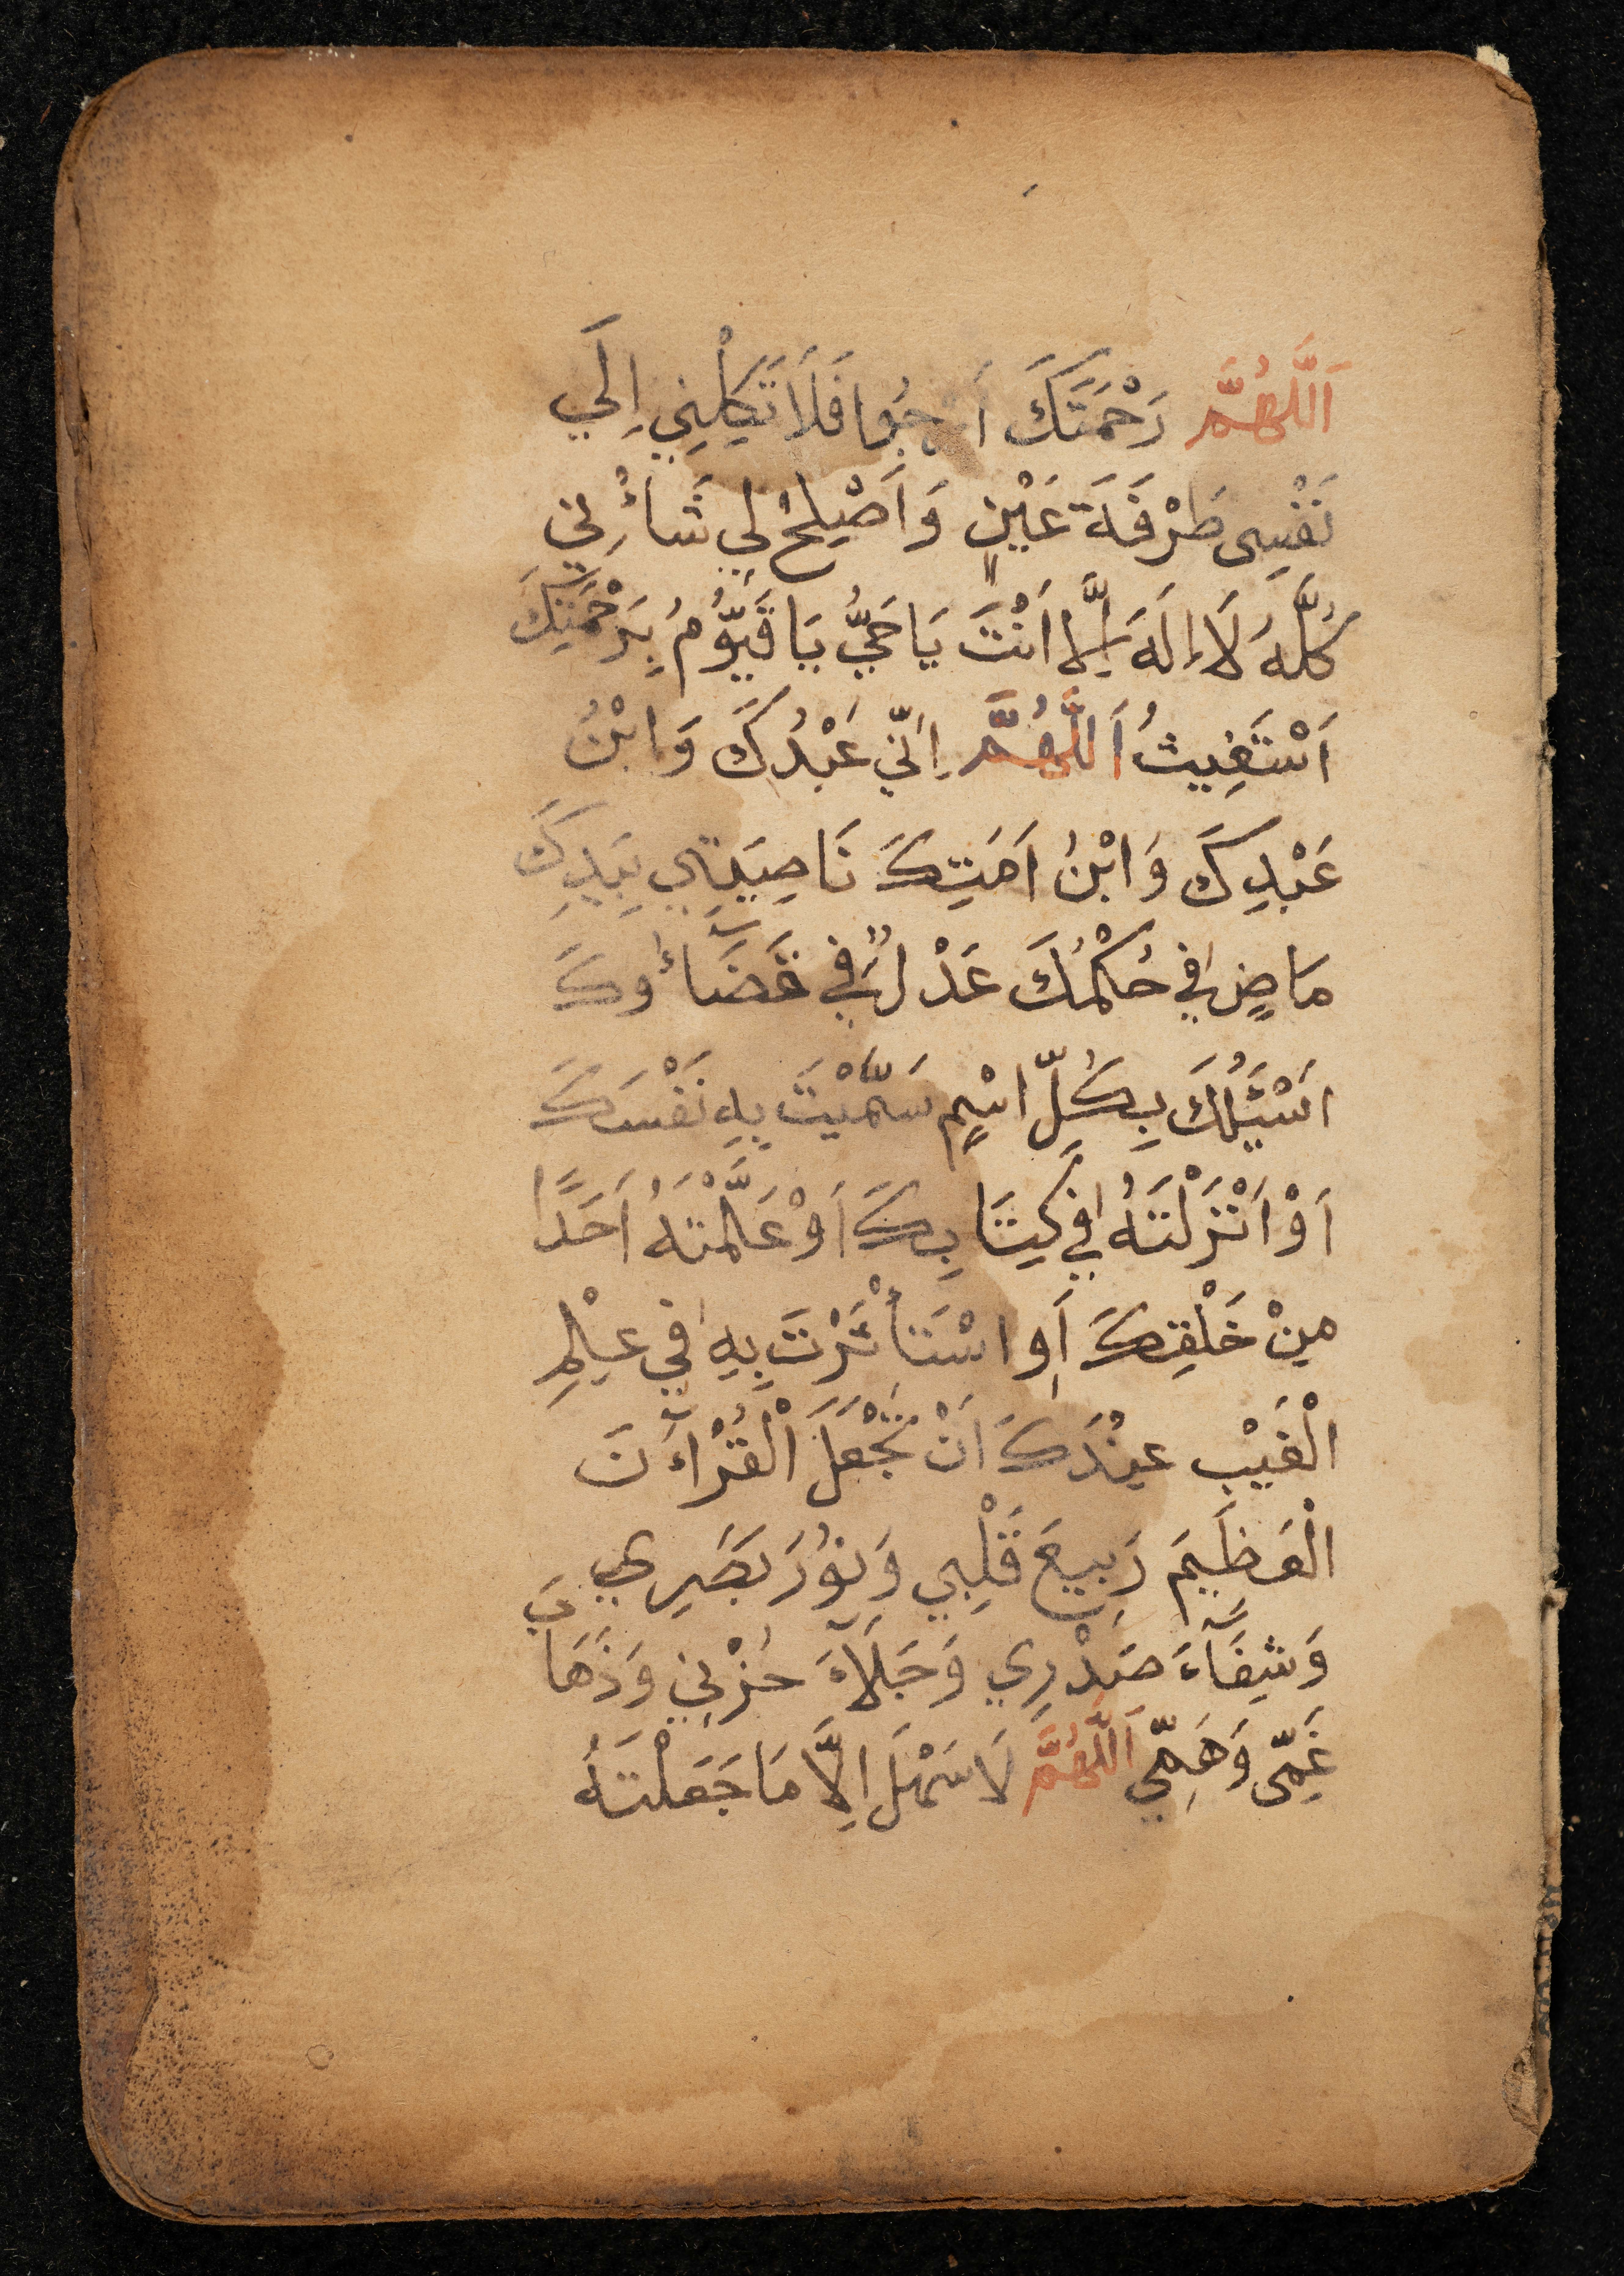 اَللَّهُمَّ رَحْمَتَكَ اَرجُوا فَلَا تَكِلْنِي اِلَي
نَفْسِى طَرْفَةَ عَيْنٍ وَاَصْلِحْ لِي شَاءْنِي
كُلَّهُ لَا اِلَهَ اِلَّا اَنْتَ يَا حَيُّ يَا قَيُّوْمُ بِرَحْمَتِكَ
اَسْتَغِيثُ اَللَّهُمَّ اِنِّي عَبْدُكَ وَابْنُ
عَبْدِكَ وَابْنُ اَمَتِكَ نَاصِيَتِي بِيَدِكَ
مَاضٍ فِي حُكْمُكَ عَدْلٌ فِي قَضَآؤُكَ
اَسْئَلُكَ بِكُلِّ اسْمٍ سَمَّيْتَ بِهِ نَفْسَكَ
اَوْ اَنْزَلْتَهُ فِي كِتَابِكَ اَوْ عَلَّمْتَهُ اَحَدًا
مِنْ خَلْقِكَ اَوِ اسْتَأْثَرْتَ بِهِ فِي عِلْمِ
الْغَيْبِ عِنْدَكَ اَنْ تَجْعَلَ الْقُرْآنَ
الْعَظِيمَ رَبِيعَ قَلْبِي وَنُوْرَ بَصَرِي
وَشِفَآءَ صَدْرِي وَجَلَآءَ حُزْنِي وَذَهَابَ
غَمِّى وَهَمِّي اَللَّهُمَّ لَا سَهْلَ اِلَّا مَا جَعَلْتَهُ